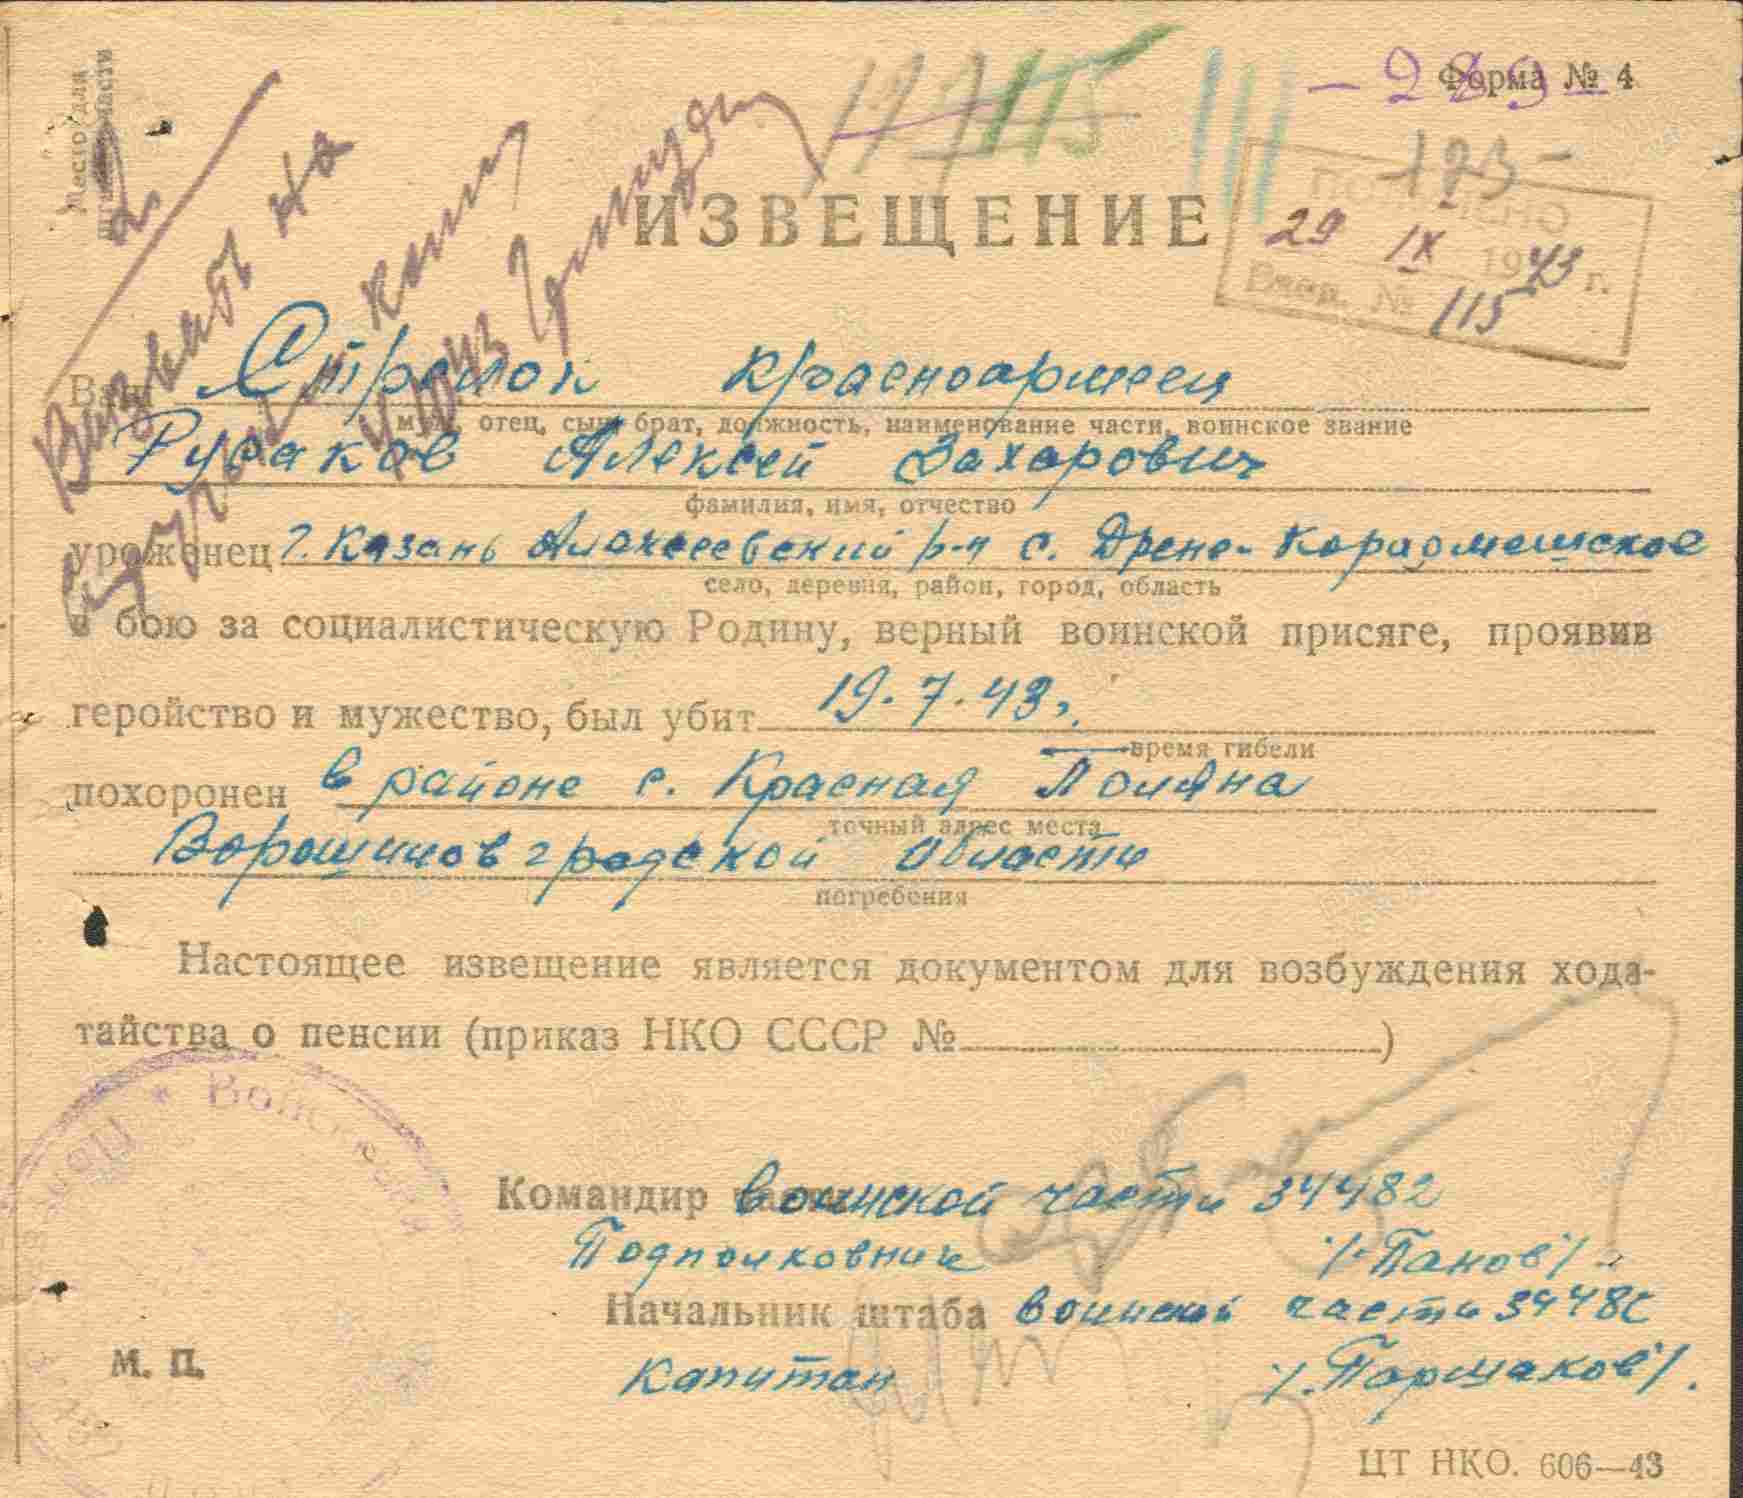 Место для
штампа части
Форма № 4
- 289 -
11715
- 123 -
ИЗВЕЩЕНИЕ
29 IX 1943 г.
Вход. № 115
Вызвать на
Ваш Стрелок красноармеец
муж, отец, сын, брат, должность, наименование части, воинское звание
Русаков Алексей Захарович
фамилия, имя, отчество
уроженец г. Казань Алексеевский р-н с.
село, деревня, район, город, область
в бою за социалистическую Родину, верный воинской присяге, проявив
геройство и мужество, был убит 19.7.43г.
время гибели
похоронен в районе с. Красная Поляна
точный адрес места
Ворошиловградской области
погребения
Настоящее извещение является документом для возбуждения хода-
тайства о пенсии (приказ НКО СССР № )
Войсковая
Командир части воинской части 34482
Подполковник /Панов/
Начальник штаба воинской части 34482
М. П.
Капитан /Паршаков/.
ЦТ НКО. 606—43